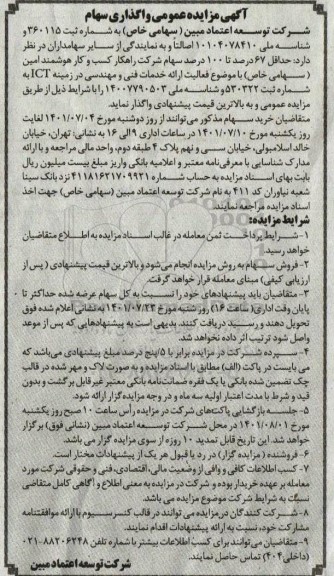 آگهی مزایده عمومی واگذاری سهام
شرکت توسعه اعتماد مبین (سهامی خاص) به شماره ثبت ۳۶۰۱۱۵ و
شناسه ملی ۱۰۱۰۴۰۷۸۴۱۰ اصالتاً و به نمایندگی از سایر سهامداران در نظر
دارد: حداقل ۶۷ درصد تا ۱۰۰ درصد سهام شرکت راهکار کسب و کار هوشمند امین
(سهامی خاص) با موضوع فعالیت ارائه خدمات فنی و مهندسی در زمینه ICT به
شماره ثبت ۵۳۰۳۲۲ و شناسه ملی ۱۴۰۰۷۷۹۰۵۰۳ را با شرایط ذیل از طریق
مزایده عمومی و به بالاترین قیمت پیشنهادی واگذار نماید.
متقاضیان خرید سهام مذکور می‌توانند از روز دوشنبه مورخ ۱۴۰۱/۰۷/۰۴ لغایت
روز یکشنبه مورخ ۱۴۰۱/۰۷/۱۰ در ساعات اداری ۹ الی ۱۶ به نشانی: تهران، خیابان
خالد اسلامبولی، خیابان سی و نهم پلاک ۴ طبقه دوم، واحد مالی مراجعه و با ارائه
مدارک شناسایی یا معرفی‌نامه معتبر و اعلامیه بانکی واریز مبلغ بیست میلیون ریال
بابت بهای اسناد مزایده به حساب شماره ۴۱۱۸۱۶۲۱۷۰۹۹۲۱ نزد بانک سینا
شعبه نیاوران کد ۴۱۱ به نام شرکت توسعه اعتماد مبین (سهامی خاص) جهت اخذ
اسناد مزایده مراجعه نمایند.
شرایط مزایده:
۱- شرایط پرداخت ثمن معامله در غالب اسناد مزایده به اطلاع متقاضیان
خواهد رسید.
۲- فروش سهام به روش مزایده انجام می‌شود و بالاترین قیمت پیشنهادی (پس از
ارزیابی کیفی) مبنای معامله قرار خواهد گرفت.
۳- متقاضیان باید پیشنهادهای خود را نسبت به کل سهام عرضه شده حداکثر تا
پایان وقت اداری (ساعت ۱۶) روز شنبه مورخ ۱۴۰۱/۰۷/۲۳ به نشانی اعلام شده فوق
تحویل دهند و رسید دریافت کنند. بدیهی است به پیشنهادهایی که پس از موعد
واصل شود ترتیب اثر داده نخواهد شد.
۴- سپرده شرکت در مزایده برابر با ۵/پنج درصد مبلغ پیشنهادی می‌باشد که
می بایست در پاکت (الف) مطابق با اسناد مزایده و به صورت لاک و مهر شده در قالب
چک تضمین شده بانکی یا یک فقره ضمانت‌نامه بانکی معتبر غیرقابل برگشت و بدون
قید و شرط با مدت اعتبار اولیه سه ماه و در وجه مزایده گزار ارائه شود.
۵- جلسه بازگشایی پاکت‌های شرکت در مزایده رأس ساعت ۱۰ صبح روز یکشنبه
مورخ ۱۴۰۱/۰۸/۰۱ در محل شرکت توسعه اعتماد مبین (نشانی فوق) برگزار
خواهد شد. این تاریخ قابل تمدید ۱۰ روزه از سوی مزایده گزار می باشد.
۶- فروشنده (مزایده گزار) در رد یا قبول هر یک از پیشنهادات مختار است.
۷- کسب اطلاعات کافی و وافی از وضعیت مالی، اقتصادی، فنی و حقوقی شرکت مورد
معامله بر عهده خریدار بوده و شرکت در مزایده به معنی اطلاع و آگاهی کامل متقاضی
نسبت به شرایط شرکت موضوع مزایده می باشد.
۸- شرکت کنندگان در مزایده می توانند در قالب کنسرسیوم با ارائه موافقتنامه
مشارکت خود، نسبت به ارائه پیشنهادات اقدام نمایند.
۹- متقاضیان می‌توانند برای کسب اطلاعات بیشتر با شماره تلفن ۸۸۲۰۶۲۴۸-۰۲۱
(داخلی ۴۰۴) تماس حاصل نمایند.
شرکت توسعه اعتماد مبین